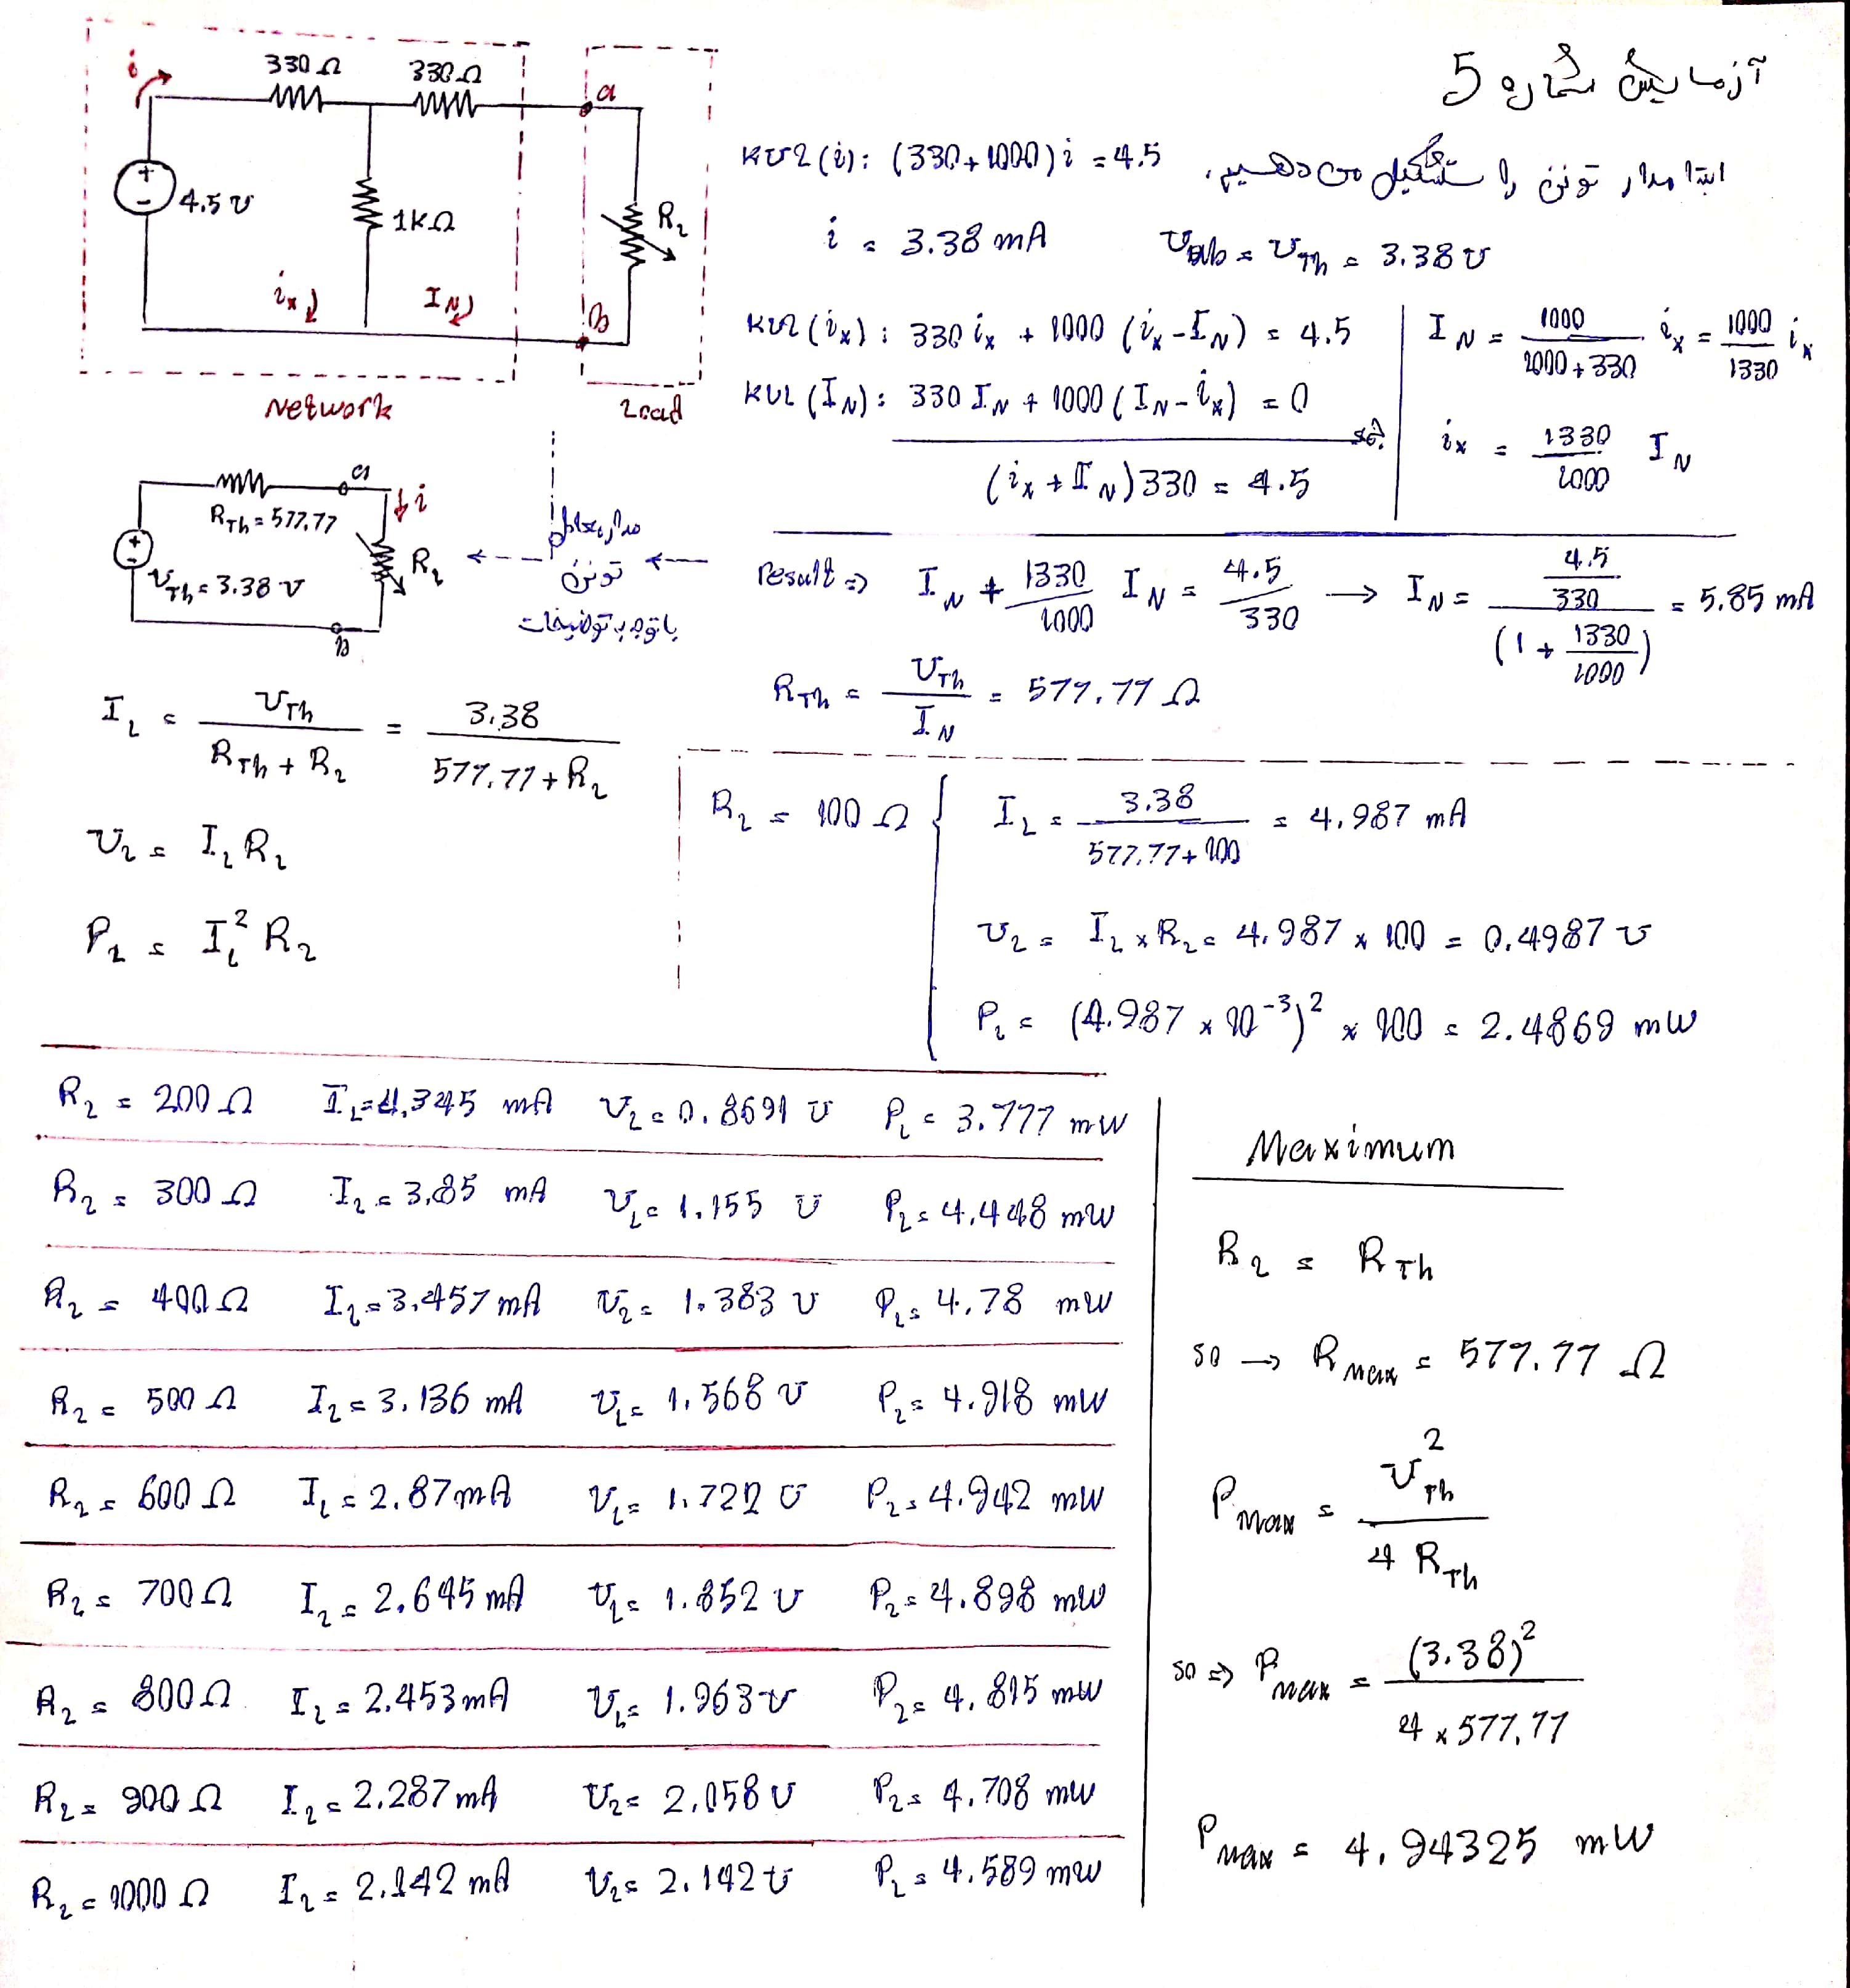 آزمایش شماره 5
330 Ω
330 Ω
i
a
4.5 v
1kΩ
R_L
i_x
I_N
b
Network
Load
ابتدا مدار تونن را تشکیل می دهیم.
KVL (i): (330 + 1000) i = 4.5
i = 3.38 mA
V_ab = V_Th = 3.38 v
KVL (i_x): 330 i_x + 1000 (i_x - I_N) = 4.5
KVL (I_N): 330 I_N + 1000 (I_N - i_x) = 0
so:
(i_x + I_N) 330 = 4.5
I_N = 1000 / (1000 + 330) i_x = 1000 / 1330 i_x
i_x = 1330 / 1000 I_N
Result => I_N + 1330 / 1000 I_N = 4.5 / 330 → I_N = (4.5 / 330) / (1 + 1330 / 1000) = 5.85 mA
R_Th = V_Th / I_N = 577.77 Ω
مدار معادل
تونن
با توجه به توضیحات
R_Th = 577.77
a
i
V_Th = 3.38 v
R_L
b
I_L = V_Th / (R_Th + R_L) = 3.38 / (577.77 + R_L)
V_L = I_L R_L
P_L = I_L² R_L
R_L = 100 Ω
I_L = 3.38 / (577.77 + 100) = 4.987 mA
V_L = I_L × R_L = 4.987 × 100 = 0.4987 v
P_L = (4.987 × 10⁻³)² × 100 = 2.4869 mW
R_L = 200 Ω I_L = 4.345 mA V_L = 0.8691 v P_L = 3.777 mW
R_L = 300 Ω I_L = 3.85 mA V_L = 1.155 v P_L = 4.448 mW
R_L = 400 Ω I_L = 3.457 mA V_L = 1.383 v P_L = 4.78 mW
R_L = 500 Ω I_L = 3.136 mA V_L = 1.568 v P_L = 4.918 mW
R_L = 600 Ω I_L = 2.87 mA V_L = 1.722 v P_L = 4.942 mW
R_L = 700 Ω I_L = 2.645 mA V_L = 1.852 v P_L = 4.898 mW
R_L = 800 Ω I_L = 2.453 mA V_L = 1.963 v P_L = 4.815 mW
R_L = 900 Ω I_L = 2.287 mA V_L = 2.058 v P_L = 4.708 mW
R_L = 1000 Ω I_L = 2.142 mA V_L = 2.142 v P_L = 4.589 mW
Maximum
R_L = R_Th
so → R_max = 577.77 Ω
P_max = V_Th² / 4 R_Th
so => P_max = (3.38)² / 4 × 577.77
P_max = 4.94325 mW